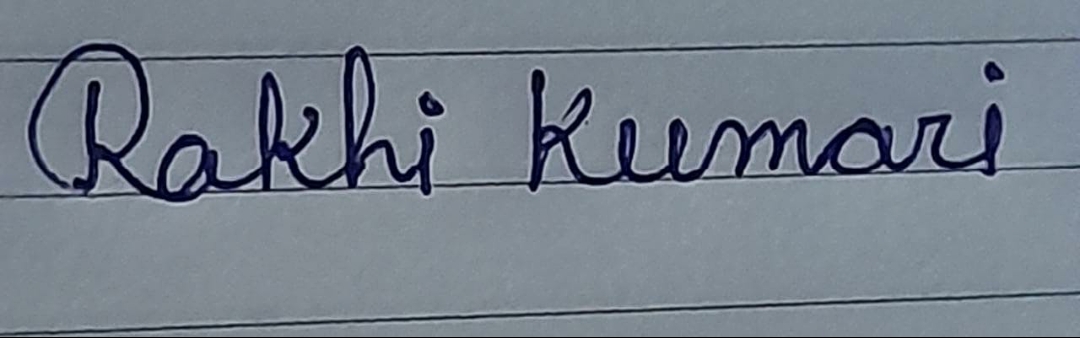 Rakhi Kumari